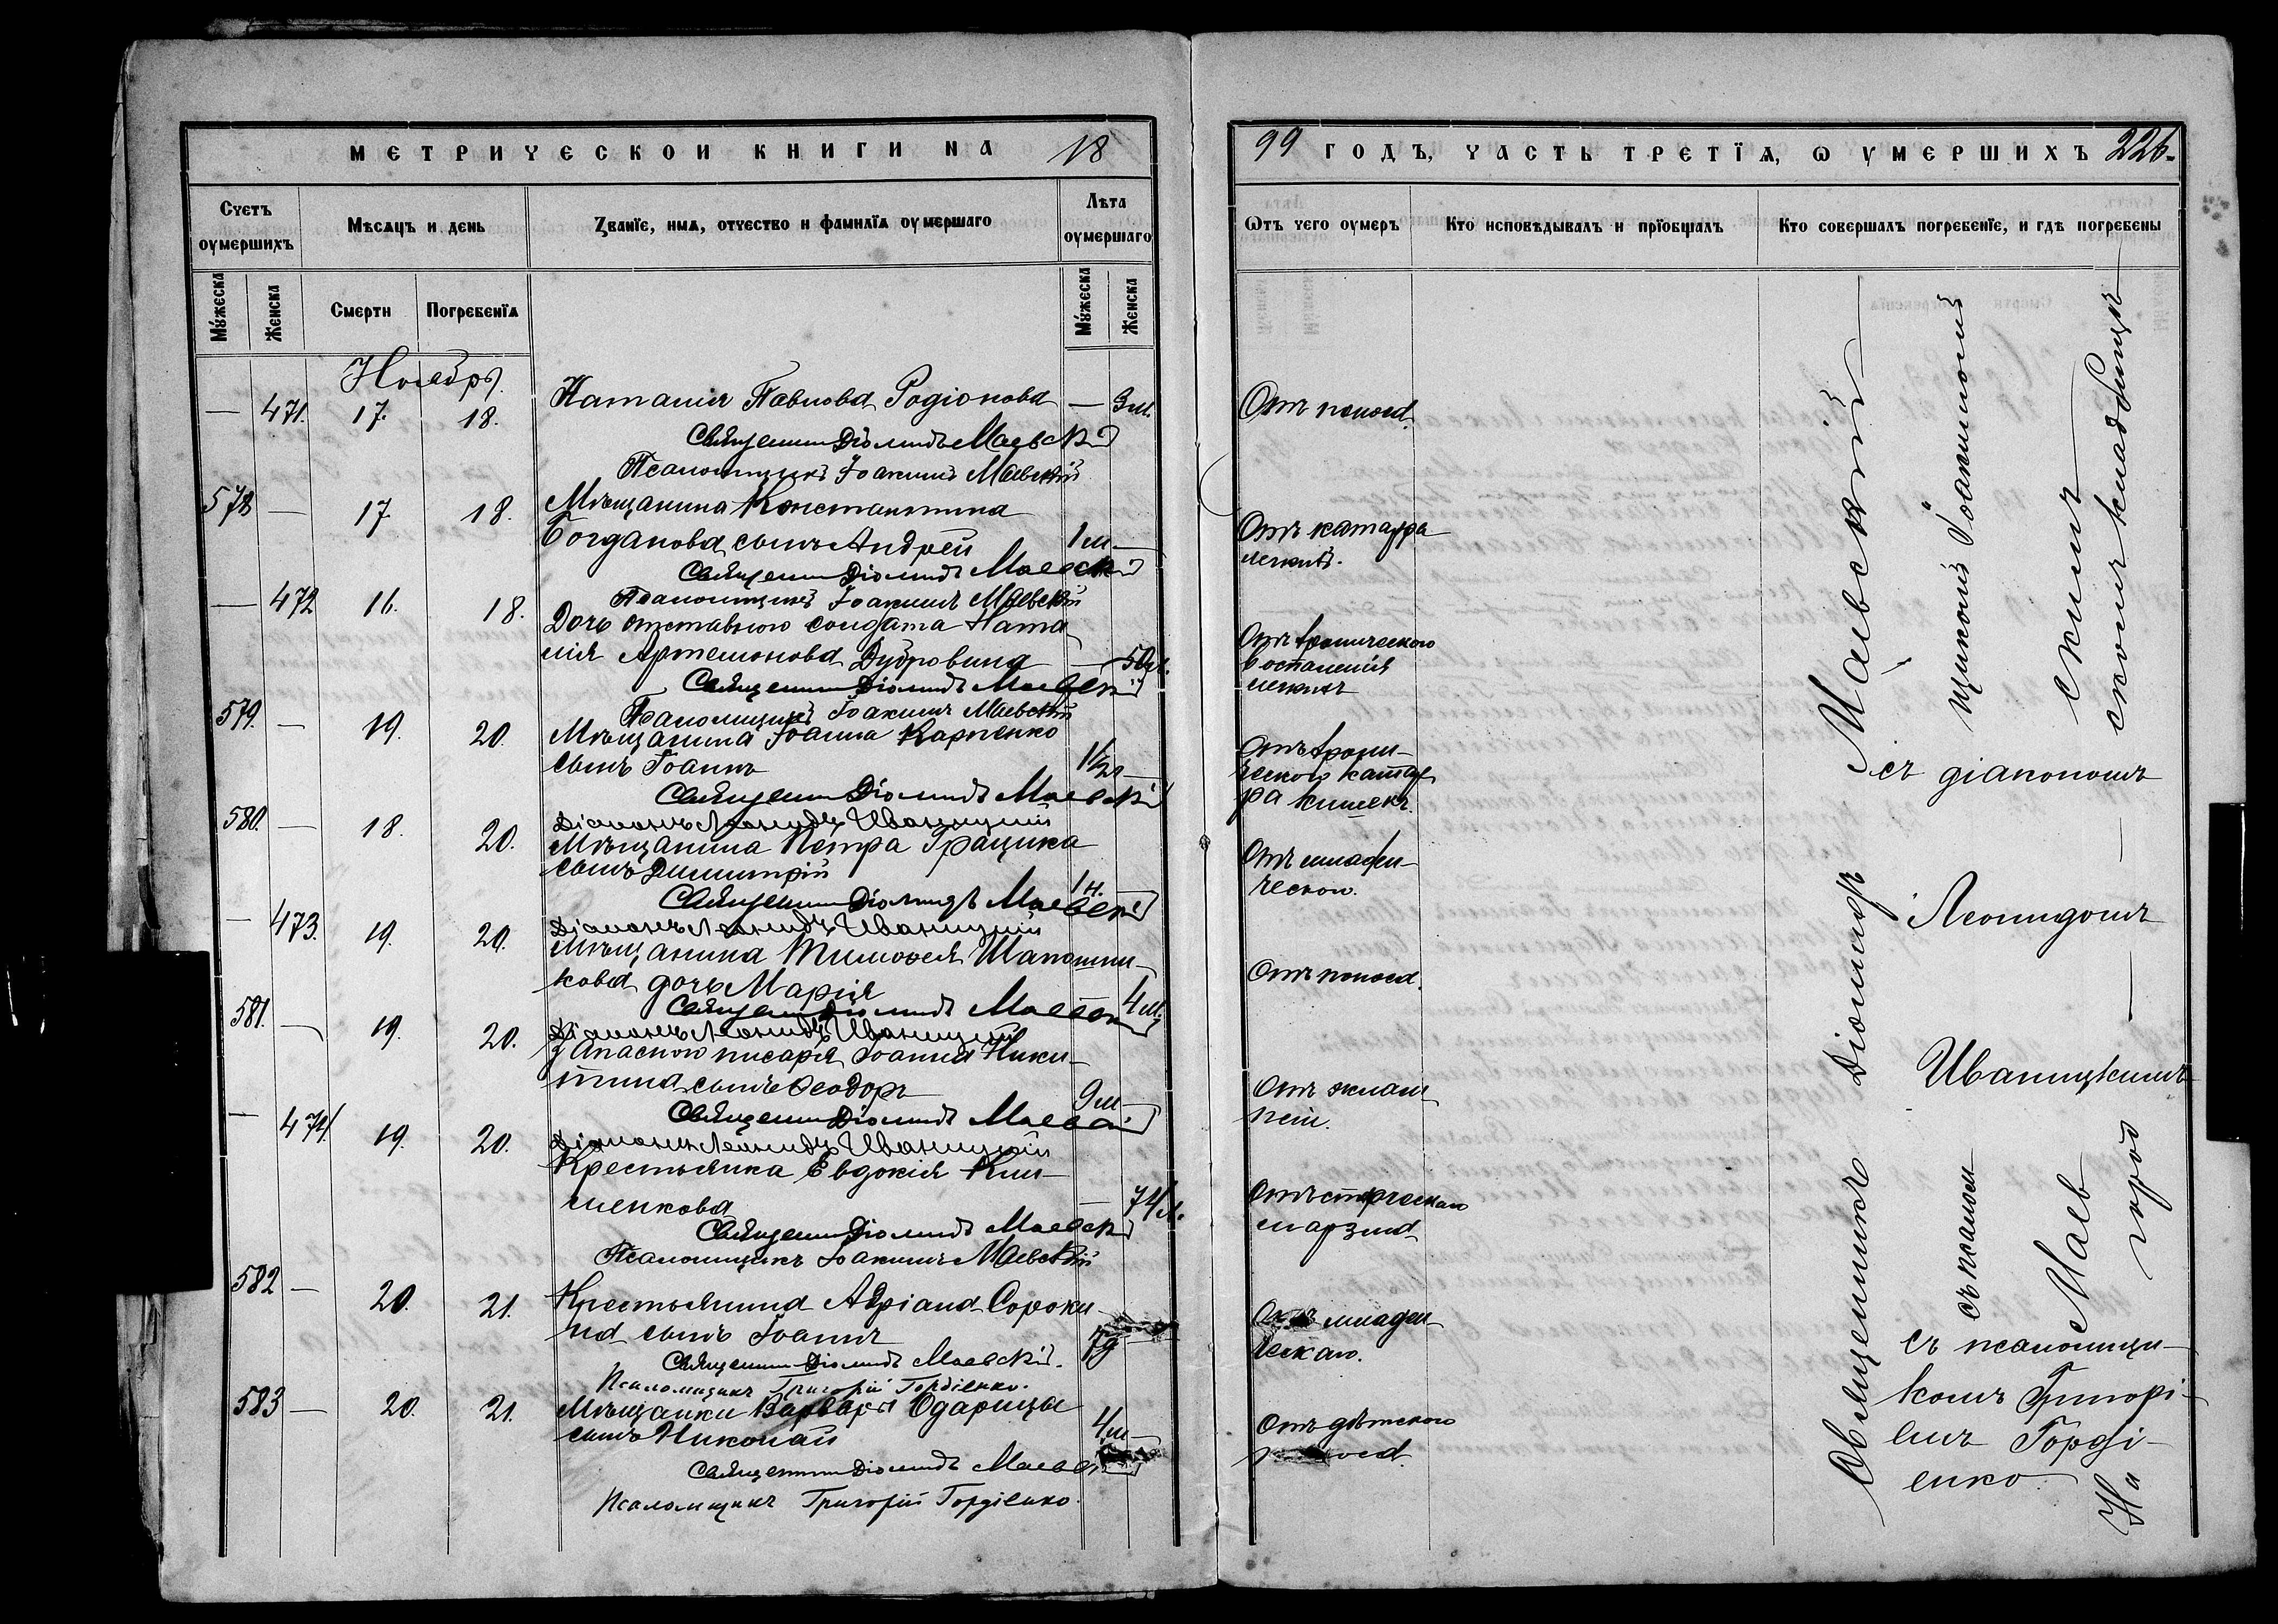 МЕТРИЧЕСКОЙ КНИГИ НА 18
Счетъ оумершихъ
Мѣсяцъ и день
Званїе, имя, отчество и фамилїя оумершаго
Лѣта оумершаго
Мꙋжеска
Женска
Смерти
Погребенїя
Мꙋжеска
Женска
Ноябрь.
— 471. 17. 18. Наталия Павлова Родіонова — 3 м.
Священникъ Діомидъ Маевскій
Псаломщикъ Іоакимъ Маевскій
578 — 17. 18. Мѣщанина Константина
Богданова сынъ Андрей 1 м —
Священникъ Діомидъ Маевскій
Псаломщикъ Іоакимъ Маевскій
— 472 16. 18. Дочь отставного солдата Ната
лія Артемонова Дубровина — 50 л.
Священникъ Діомидъ Маевскій
Псаломщикъ Іоакимъ Маевскій
579. — 19. 20. Мѣщанина Іоанна Карпенко
сынъ Іоаннъ 1½ —
Священникъ Діомидъ Маевскій
Діаконъ Леонидъ Иваницкій
580. — 18. 20. Мѣщанина Петра Грацика
сынъ Димитрій 1 н. —
Священникъ Діомидъ Маевскій
Діаконъ Леонидъ Иваницкій
— 473. 19. 20. Мѣщанина Тимоѳея Шапошни-
кова дочь Марія — 4 м.
Священникъ Діомидъ Маевскій
Діаконъ Леонидъ Иваницкій
581. — 19. 20. Запасного писаря Іоанна Ники-
тина сынъ Ѳеодоръ 9 м —
Священникъ Діомидъ Маевскій
Діаконъ Леонидъ Иваницкій
— 474. 19. 20. Крестьянка Евдокія Кли-
менкова — 74 л.
Священникъ Діомидъ Маевскій
Псаломщикъ Іоакимъ Маевскій
582 — 20. 21. Крестьянина Адріана Сороки-
на сынъ Іоаннъ 7 д —
Священникъ Діомидъ Маевскій.
Псаломщикъ Григорій Гордіенко.
583 — 20. 21. Мѣщанки Варвары Одарицы
сынъ Николай 4 м —
Священникъ Діомидъ Маевскій
Псаломщикъ Григорій Гордіенко.
99 ГОДЪ, ЧАСТЬ ТРЕТЇѦ, Ѡ УМЕРШИХЪ 226.
Ѿтъ чего оумеръ
Кто исповѣдывалъ и прїобщалъ
Кто совершалъ погребенїе, и гдѣ погребены
Отъ поноса.
Отъ катарра
легкихъ.
Отъ хроническаго
воспаленія
легкихъ
Отъ хрони-
ческого катар
ра кишекъ.
Отъ младен-
ческой.
Отъ поноса.
Отъ эклам-
псіи.
Отъ старческаго
маразма
Отъ младен-
ческаго.
Отъ дѣтского
поноса
Священникъ Діомидъ Маевскій —
съ псаломщикомъ Іоакимомъ
Маевскимъ —
На городскомъ кладбищѣ —
съ діакономъ
Леонидомъ
Иваницкимъ
съ псаломщи-
комъ Григорі-
емъ Горді-
енко.